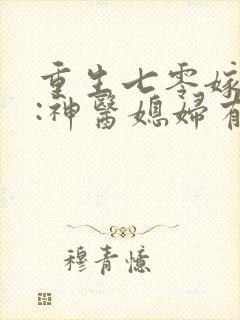 重生七零嫁
:神醫媳婦有
穆青憶